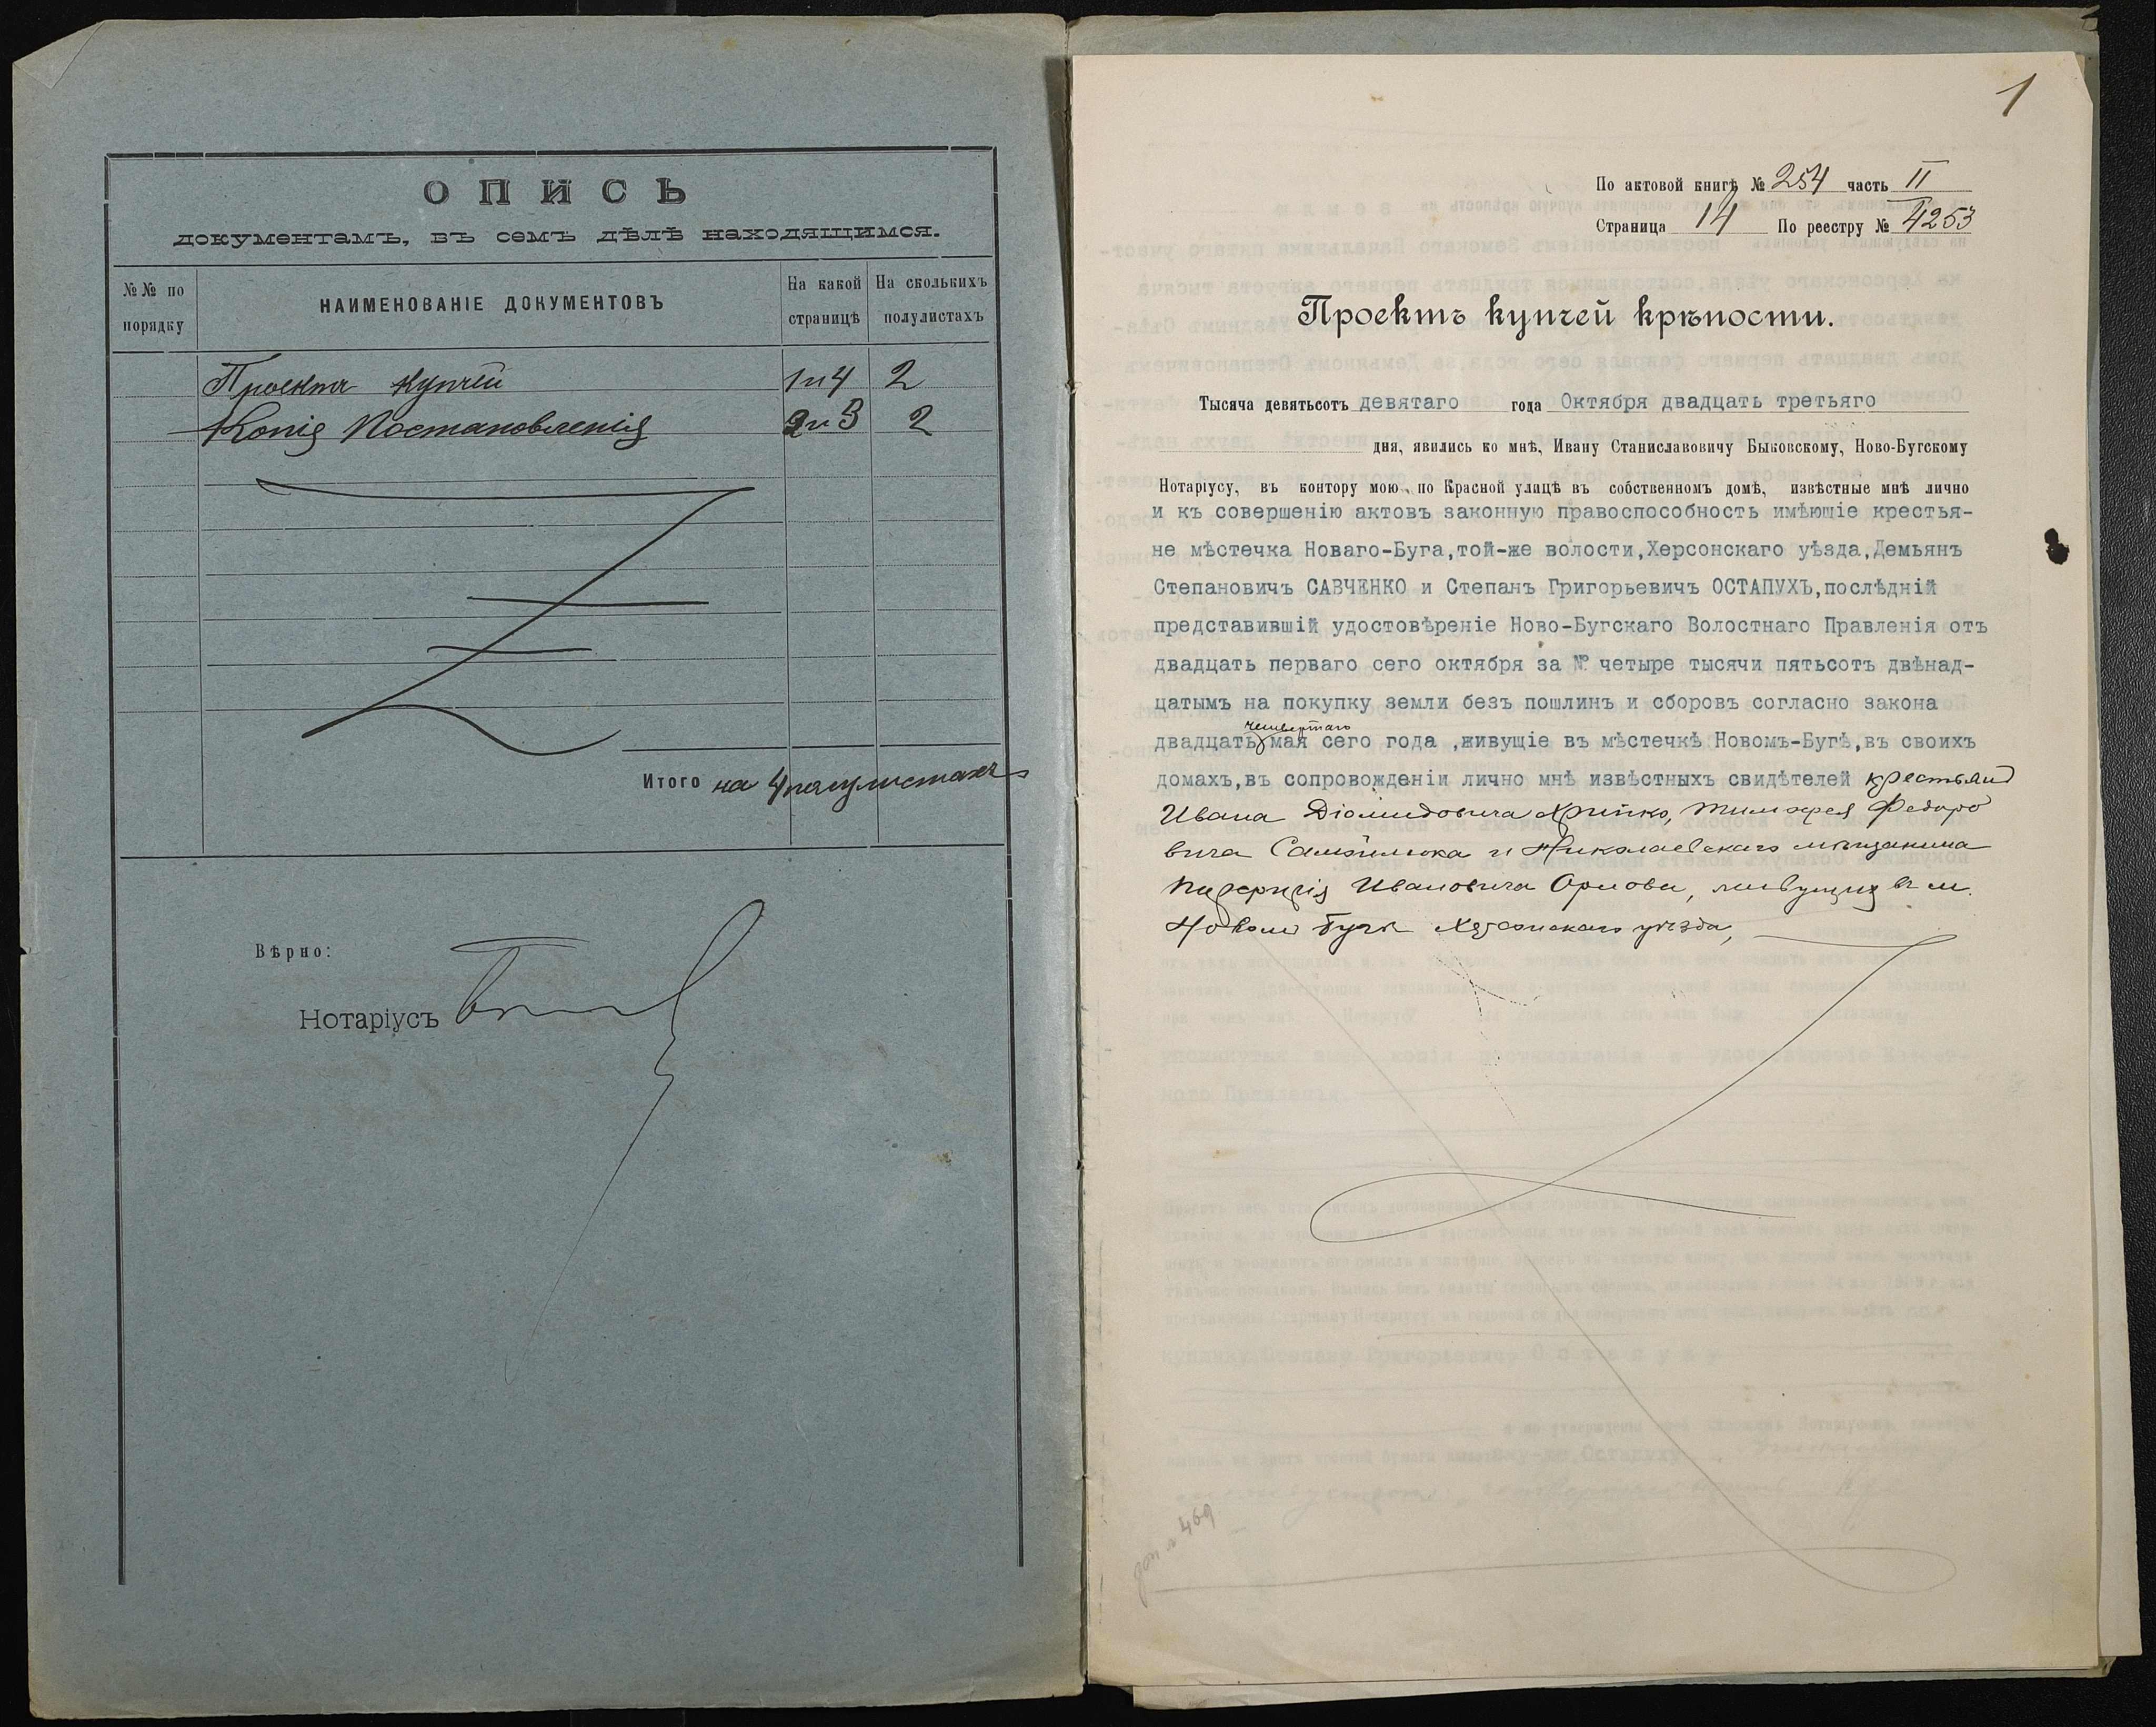 ОПИСЬ
документамъ, въ семъ дѣлѣ находящимся.
№№ по порядку
НАИМЕНОВАНІЕ ДОКУМЕНТОВЪ
На какой страницѣ
На сколькихъ полулистахъ
Проектъ купчей 1 и 4 2
Копія Постановленія 2 и 3 2
Итого на 4 полулистахъ
Вѣрно:
Нотаріусъ
1
По актовой книгѣ № 254 часть II
Страница 14 По реестру № 4253
Проектъ купчей крѣпости.
Тысяча девятьсотъ девятаго года Октября двадцать третьяго
дня, явились ко мнѣ, Ивану Станиславовичу Быковскому, Ново-Бугскому
Нотаріусу, въ контору мою, по Красной улицѣ въ собственномъ домѣ, извѣстные мнѣ лично
и къ совершенію актовъ законную правоспособность имѣющіе крестья-
не мѣстечка Новаго-Буга,той-же волости,Херсонскаго уѣзда,Демьянъ
Степановичъ САВЧЕНКО и Степанъ Григорьевичъ ОСТАПУХЪ,послѣдній
представившій удостовѣреніе Ново-Бугскаго Волостнаго Правленія отъ
двадцать перваго сего октября за № четыре тысячи пятьсотъ двѣнад-
цатымъ на покупку земли безъ пошлинъ и сборовъ согласно закона
четвертаго
двадцать мая сего года ,живущіе въ мѣстечкѣ Новомъ-Бугѣ,въ своихъ
домахъ,въ сопровожденіи лично мнѣ извѣстныхъ свидѣтелей крестьянъ
Ивана Діомидовича Тимофея Федоро
вича и Николаевскаго мѣщанина
Ивановича Орлова, живущихъ въ м.
Новомъ Бугѣ Херсонскаго уѣзда,
469